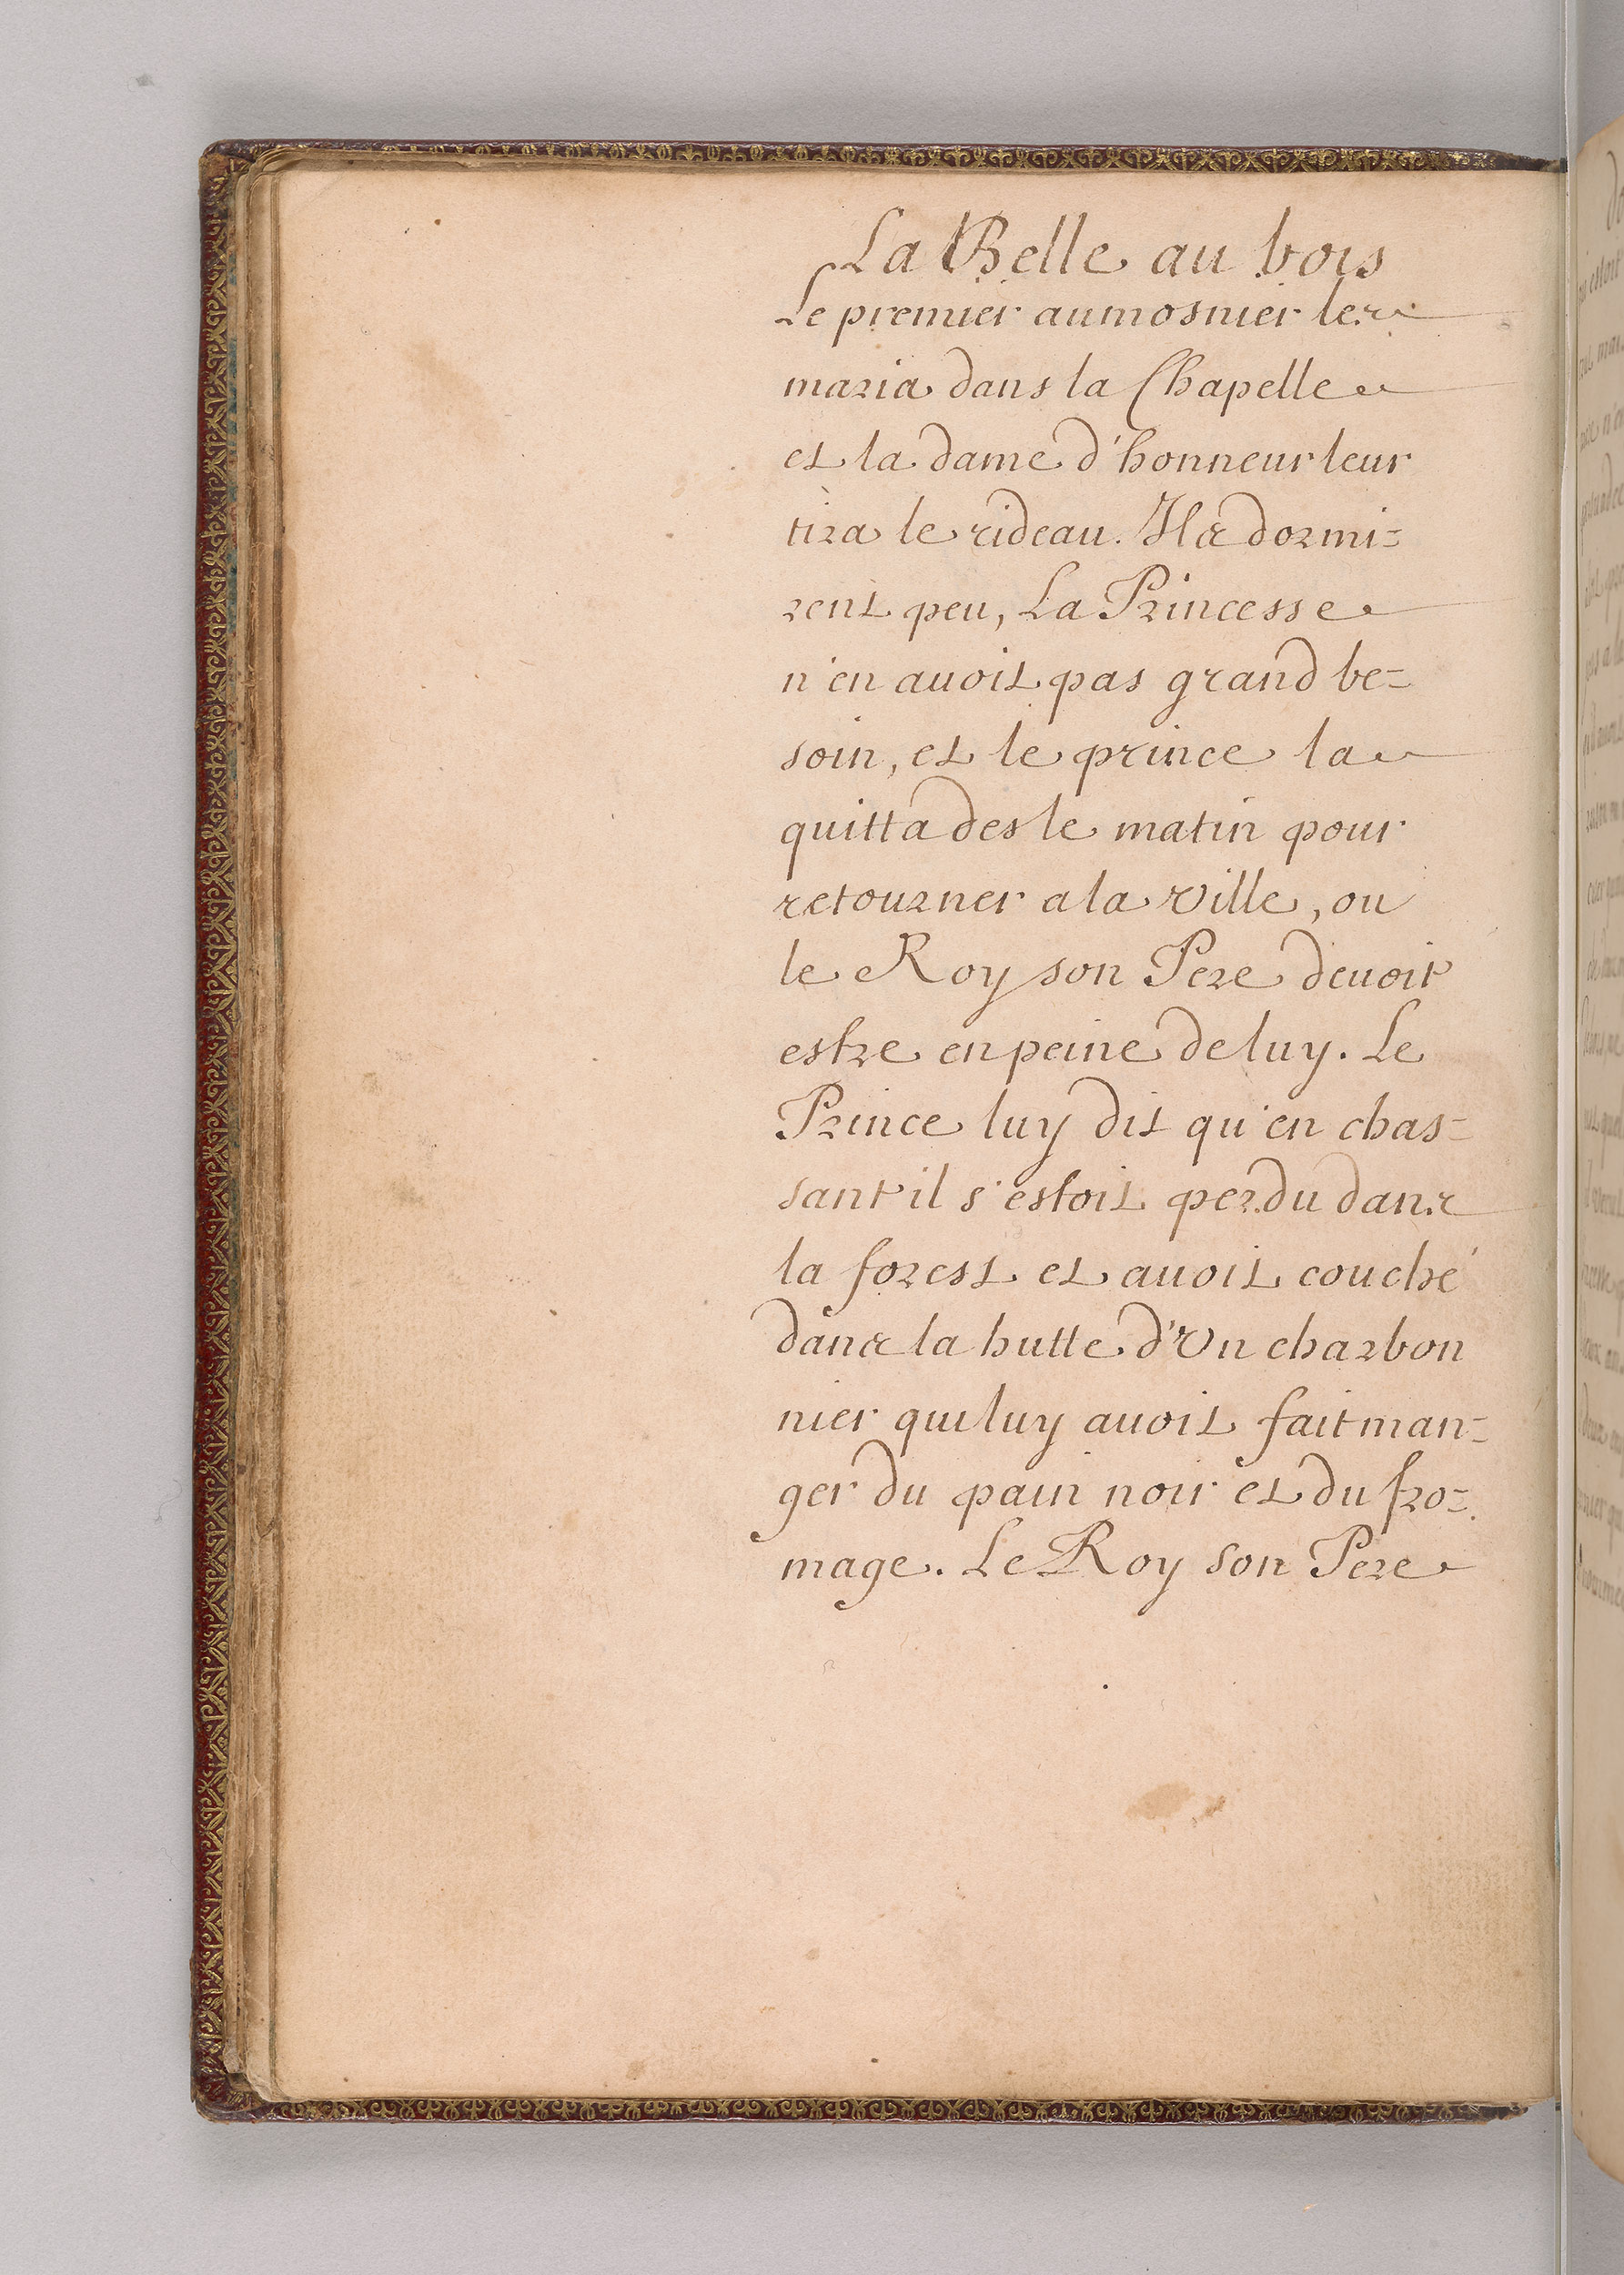 La Belle au bois
Le premier aumosnier les
maria dans la Chapelle
et la dame d'honneur leur
tira le rideau. Ils dormi=
rent peu, La Princesse
n'en auoit pas grand be=
soin, et le prince la
quitta des le matin pour
retourner a la ville, ou
le Roy son Pere deuoit
estre en peine de luy. Le
Prince luy dit qu'en chas=
sant il s'estoit perdu dans
la forest et auoit couché
dans la hutte d'vn charbon
nier qui luy auoit fait man=
ger du pain noir et du fro=
mage. Le Roy son Pere